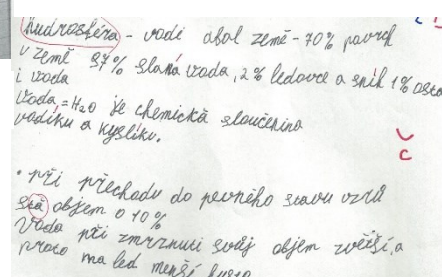 hudrosféra - vodí obal země - 70% povrch
v země 97% slaná voda, 2% ledovce a sníh 1% osta
i voda
Voda = H₂O je chemická sloučenina
vodíku a kyslíku.
• při přechodu do pevného stavu vzrů
stá objem o 10%
Voda při zmrznutí svůj objem zvětší, a
proto ma led menší husto